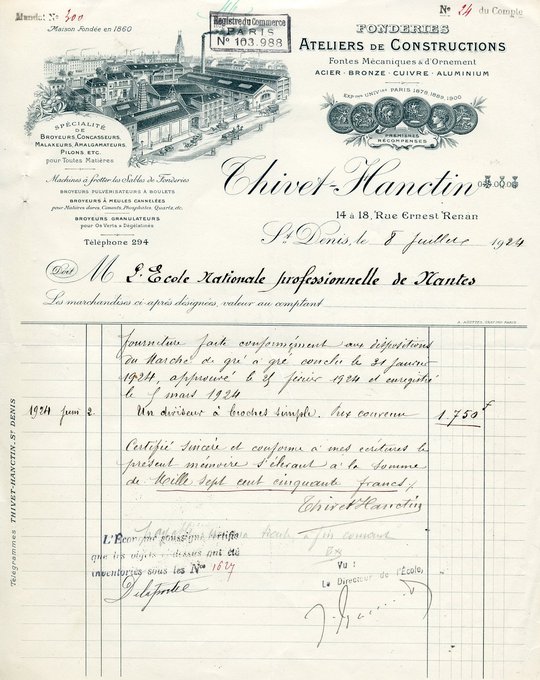 Mandat N° 300
N° 24 du Compte
Maison Fondée en 1860
Registre du Commerce
PARIS
N° 103.988
FONDERIES
ATELIERS DE CONSTRUCTIONS
Fontes Mécaniques & d'Ornement
ACIER - BRONZE - CUIVRE - ALUMINIUM
EXP^ons UNIV^les PARIS 1878, 1889, 1900
PREMIÈRES
RÉCOMPENSES
SPÉCIALITÉ
DE
BROYEURS, CONCASSEURS,
MALAXEURS, AMALGAMATEURS
PILONS, ETC.
pour Toutes Matières
Machines à frotter les Sables de Fonderies
BROYEURS PULVÉRISATEURS À BOULETS
BROYEURS À MEULES CANNELÉES
pour Matières dures, Ciments, Phosphates, Quartz, etc.
BROYEURS GRANULATEURS
pour Os Verts & Dégélatinés
Téléphone 294
Thivet-Hanctin
14 à 18, Rue Ernest Renan
S^t Denis, le 8 Juillet 1924
Doit M L'Ecole Nationale professionnelle de Nantes
Les marchandises ci-après désignées, valeur au comptant
Fourniture faite conformément aux dispositions
du Marché de gré à gré conclu le 31 Janvier
1924, approuvé le 25 février 1924 et enregistré
le 5 mars 1924
1924 Juin 2 Un diviseur à broches simple. Prix convenu 1.750 f
Certifié sincère et conforme à mes écritures le
présent mémoire s'élevant à la somme
de Mille sept cent cinquante francs
Thivet Hanctin
L'Econome soussigné certifie
que les objets ci-dessus ont été
inventoriés sous les N^os 1627
Delaporte
Vu :
Le Directeur de l'École,
Télégrammes, THIVET-HANCTIN, S^T DENIS